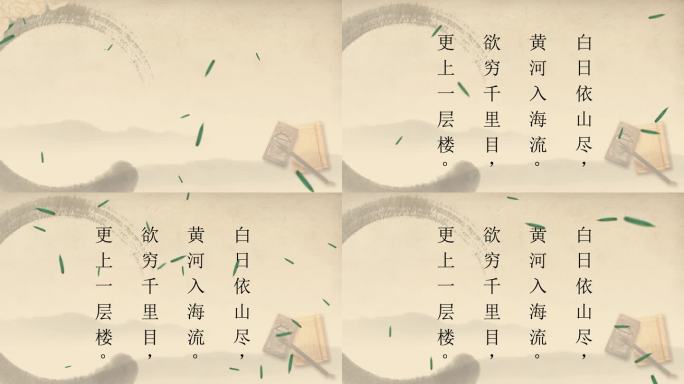 白日依山尽，
黄河入海流。
欲穷千里目，
更上一层楼。
白日依山尽，
黄河入海流。
欲穷千里目，
更上一层楼。
白日依山尽，
黄河入海流。
欲穷千里目，
更上一层楼。